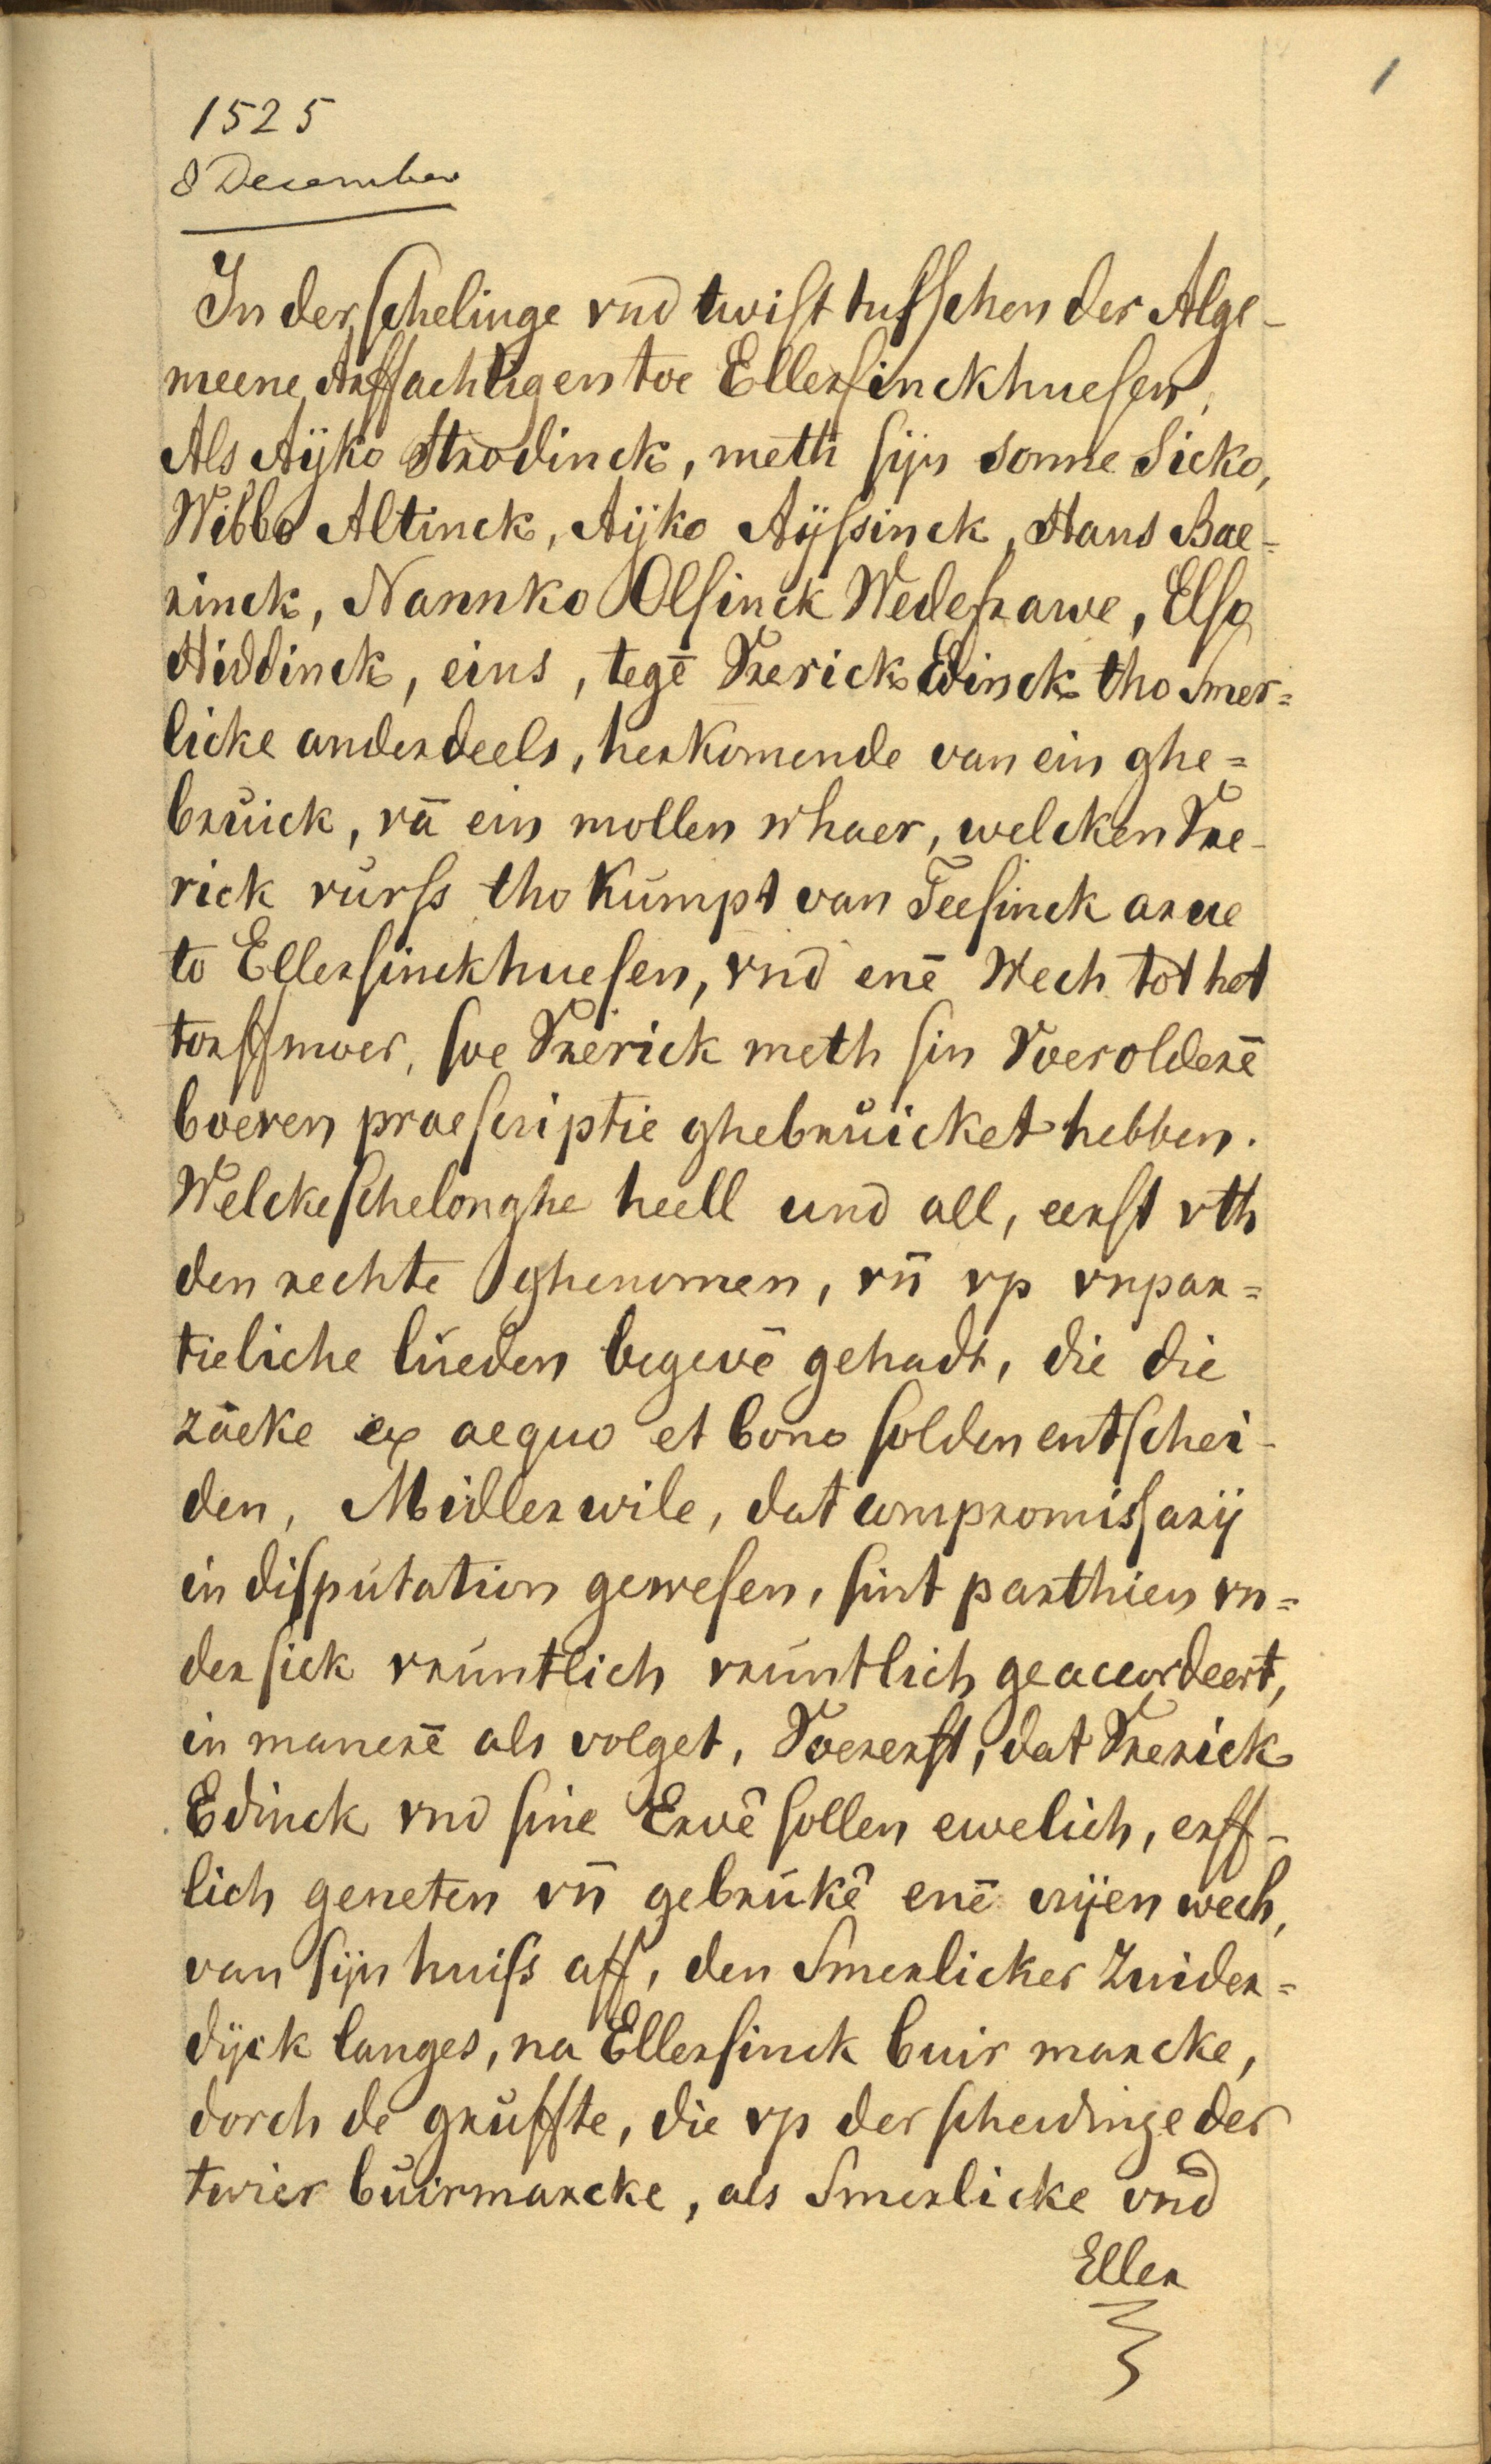 1
1525
8 December
In der schelinge vnd twist tusschen der Alge-
meene Arffachtigen toe Ellersinckhuesen,
Als Aÿko Strodinck, meth sijn sonne Sicko,
Wibbo Altinck, Aÿko Aÿssinck, Hans Bae-
rinck, Nannko Olsinck Wedefrawe, Elso
Hiddinck, eins, tegē Frerick Edinck tho Smer=
licke anderdeels, herkomende van ein ghe=
brůick, vā ein mollen whaer, welcken Fre-
rick vurss tho kůmpt van Teesinck arue
to Ellersinckhuesen, vnd enē Wech tot het
torffmoer, soe Frerick meth sin Voerolderē
boeren praescriptie ghebrůicket hebben.
Welcke schelonghe heell und all, eerst vth
den rechte ghenomen, vn̄ vp vnpar=
tieliche lůeden begevē gehadt, die die
zåcke ex aequo et bono solden entschei-
den, Midlerwile, dat compromissarij
in dispůtation gewesen, sint parthien vn=
der sick vrůntlich vrůntlich geaccordeert,
in manerē als volget, Voererst, dat Frerick
Edinck vnd sine Ervē sollen ewelich, erff-
lich geneten vn̄ gebrůkē enē vrijen wech,
van sijn huiss aff, den Smerlicker Zuider=
dÿck langes, na Ellersinck buir marcke,
dorch de grůffte, die vp der scheidinge der
twier bůirmarcke, als Smerlicke vnd
Eller